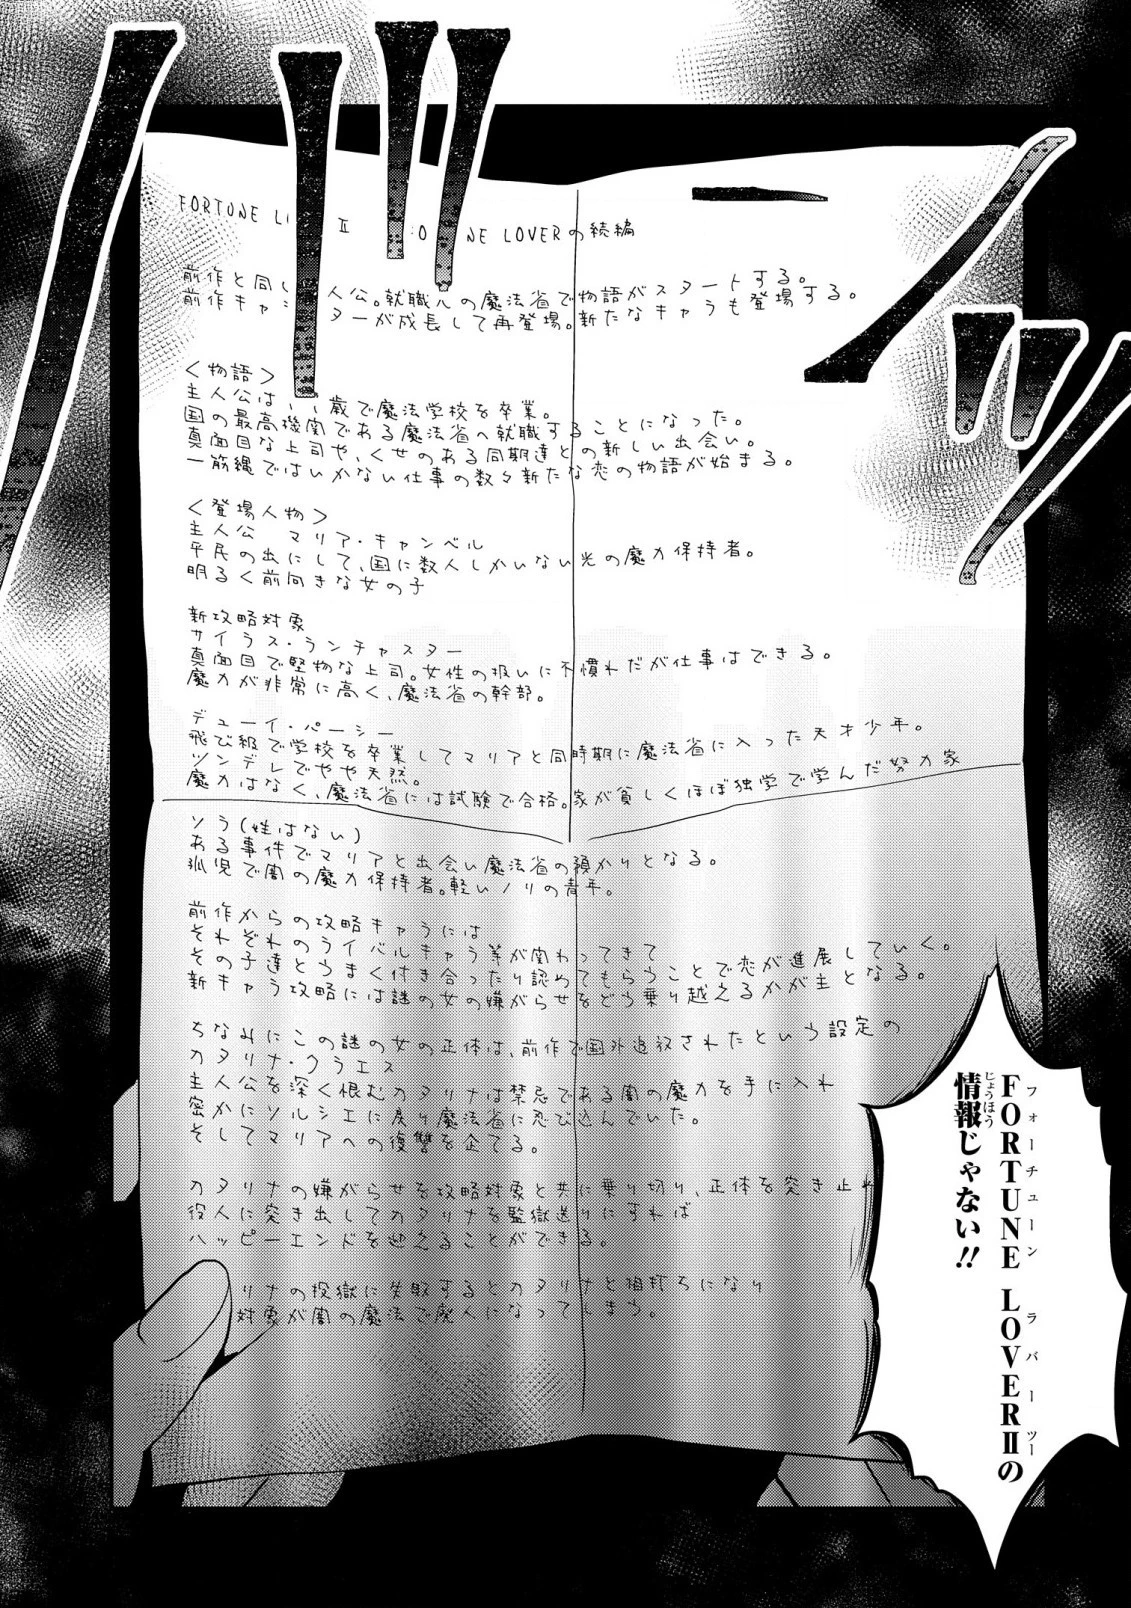 FORTUNE L II NE LOVERの続編
前作と同じ 人公。就職先の魔法省で物語がスタートする。
前作キャ ターが成長して再登場。新たなキャラも登場する。
<物語>
主人公は、 歳で魔法学校を卒業。
国の最高機関である魔法省へ就職することになった。
真面目な上司や、くせのある同期達との新しい出会い。
一筋縄ではいかない仕事の数々新たな恋の物語が始まる。
<登場人物>
主人公 マリア・キャンベル
平民の出にして、国に数人しかいない光の魔力保持者。
明るく前向きな女の子
新攻略対象
サイラス・ランチャスター
真面目で堅物な上司。女性の扱いに不慣れだが仕事はできる。
魔力が非常に高く、魔法省の幹部。
デューイ・パーシー
飛び級で学校を卒業してマリアと同時期に魔法省に入った天才少年。
ツンデレでやや天然。
魔力はなく、魔法省には試験で合格。家が貧しくほぼ独学で学んだ努力家
ソラ(姓はない)
ある事件でマリアと出会い魔法省の預かりとなる。
孤児で闇の魔力保持者。軽いノリの青年。
前作からの攻略キャラには
それぞれのライバルキャラ等が関わってきて
その子達とうまく付き合ったり認めてもらうことで恋が進展していく。
新キャラ攻略には謎の女の嫌がらせをどう乗り越えるかが主となる。
ちなみにこの謎の女の正体は、前作で国外追放されたという設定の
カタリナ・クラエス
主人公を深く恨むカタリナは禁忌である闇の魔力を手に入れ
密かにソルシエに戻り魔法省に忍び込んでいた。
そしてマリアへの復讐を企てる。
カタリナの嫌がらせを攻略対象と共に乗り切り、正体を突き止め
役人に突き出してカタリナを監獄送りにすれば
ハッピーエンドを迎えることができる。
リナの投獄に失敗するとカタリナと相打ちになり
対象が闇の魔法で廃人になってしまう。
FORTUNE LOVERⅡの
フォーチューン ラバーツー
情報じゃない!!
じょうほう